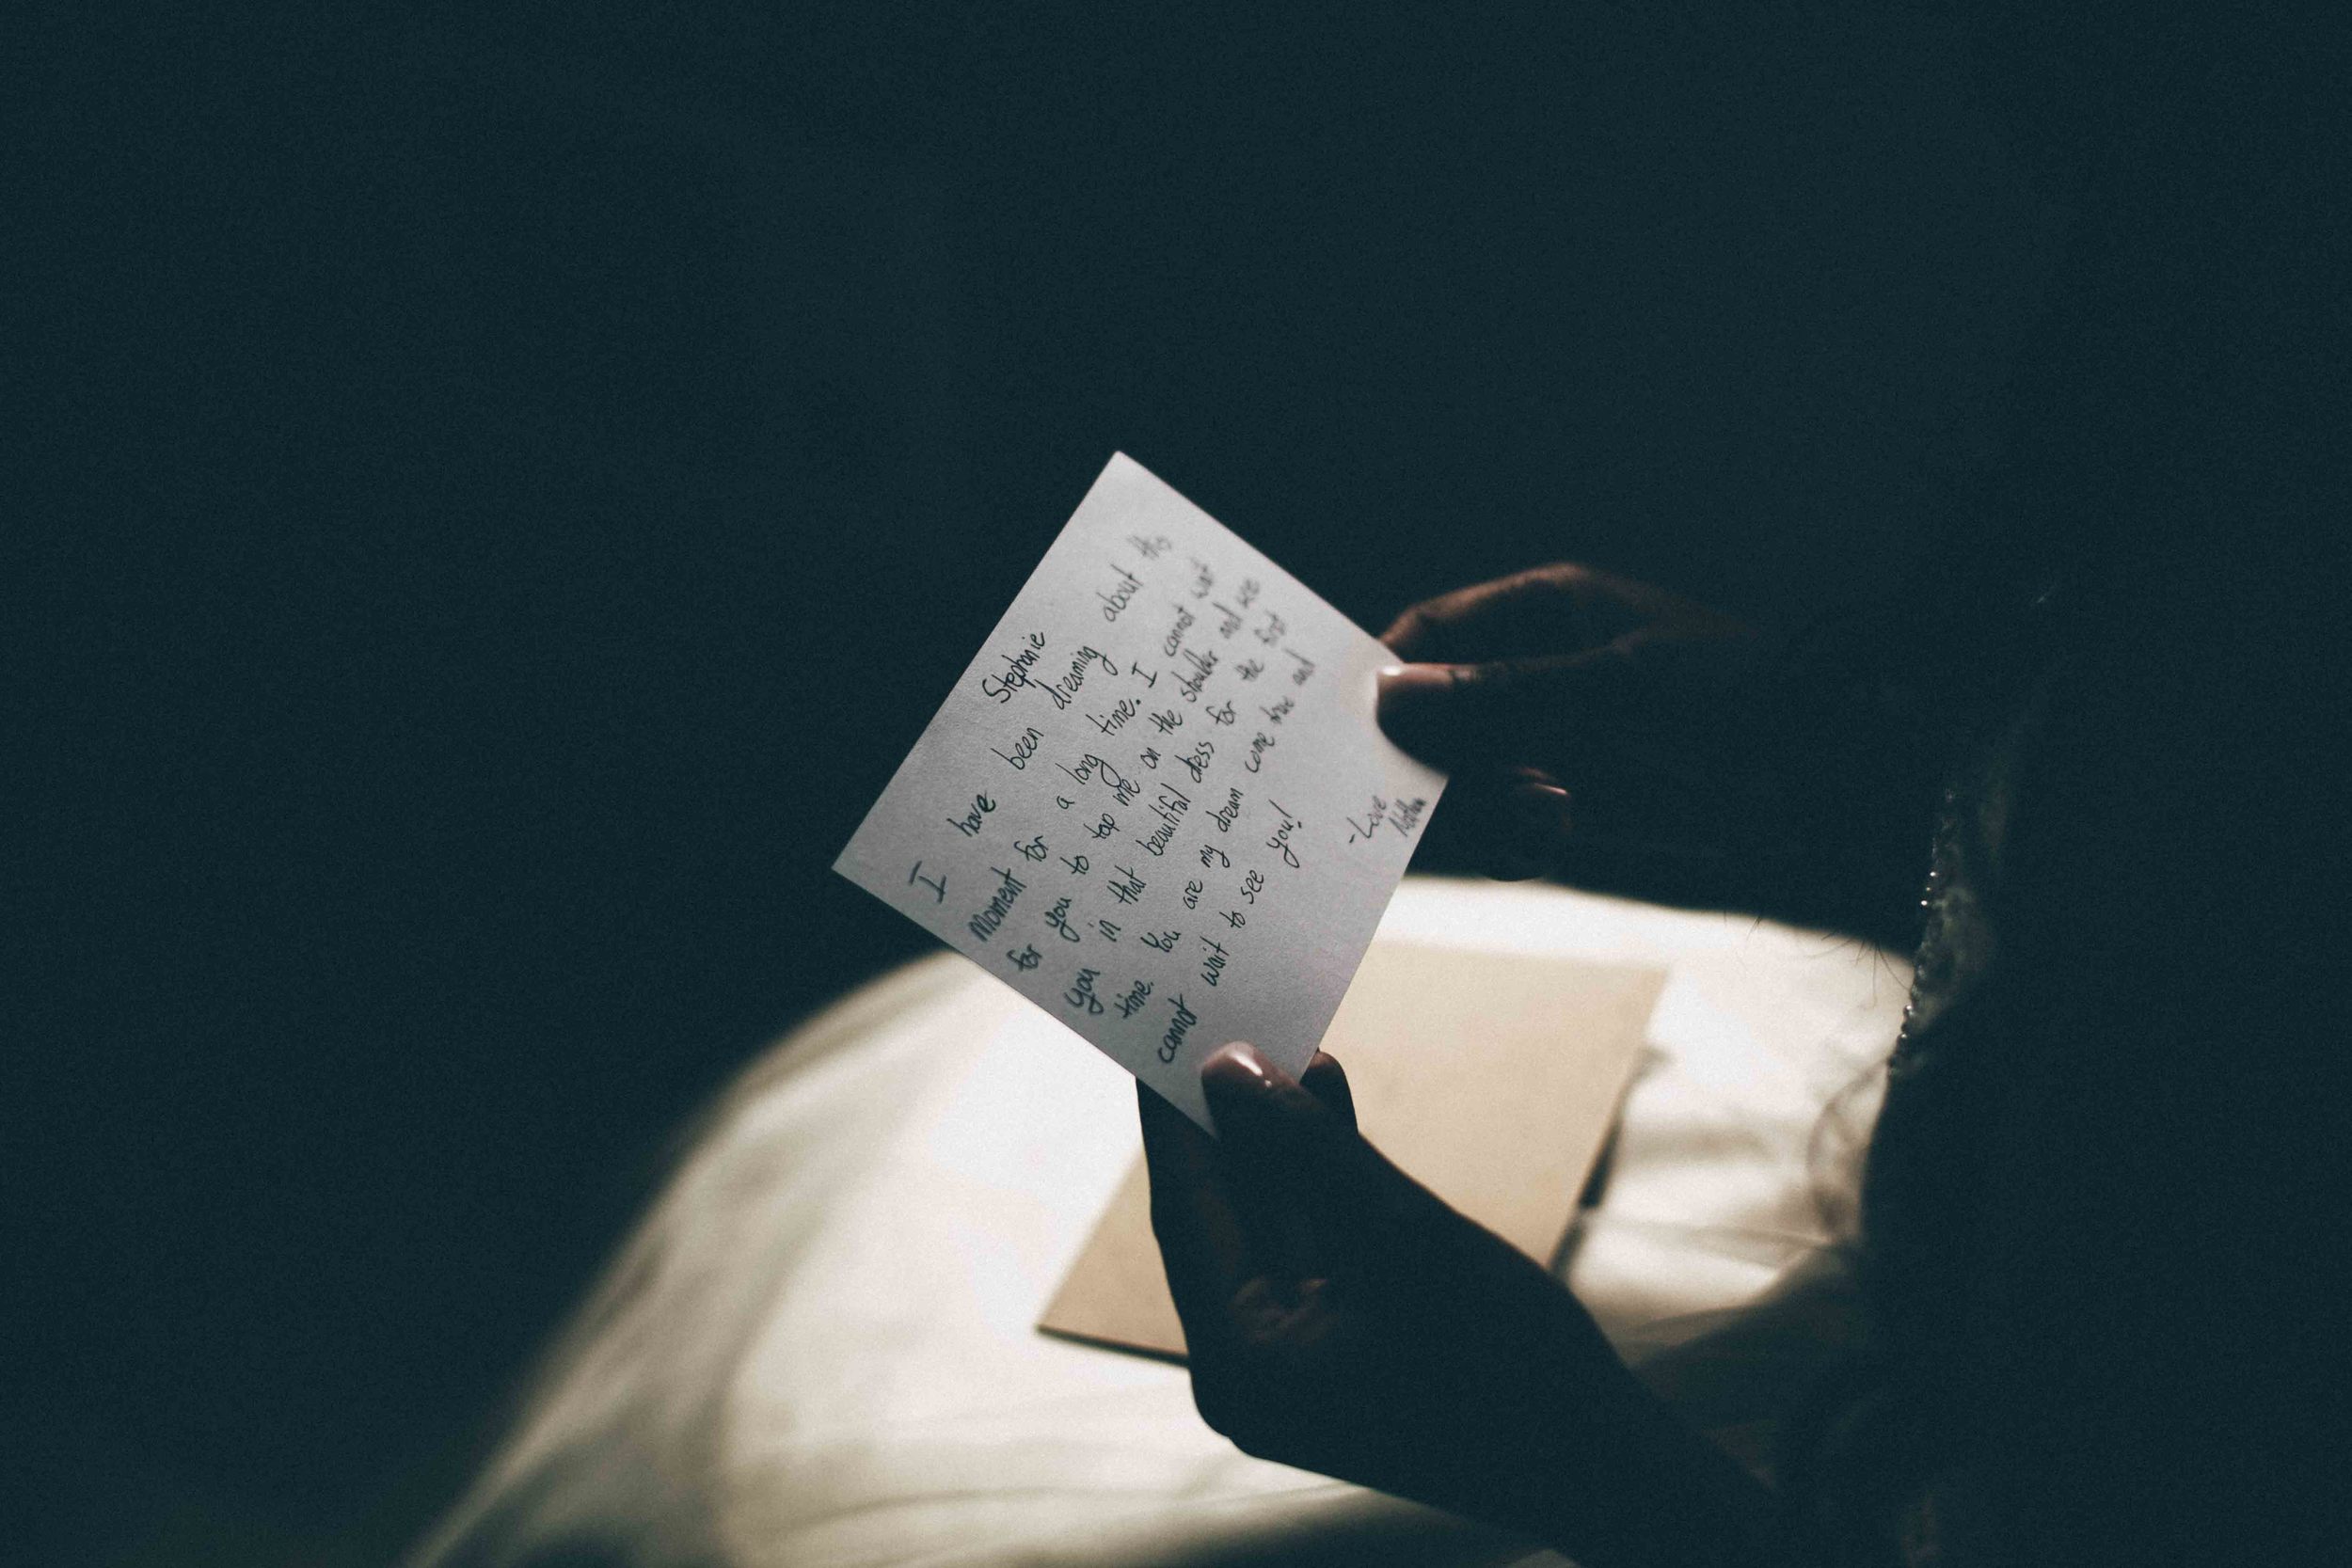 Stephanie
I have been dreaming about this
moment for a long time. I cannot wait
for you to tap me on the shoulder and see
you in that beautiful dress for the first
time. You are my dream come true and
cannot wait to see you!
-Love